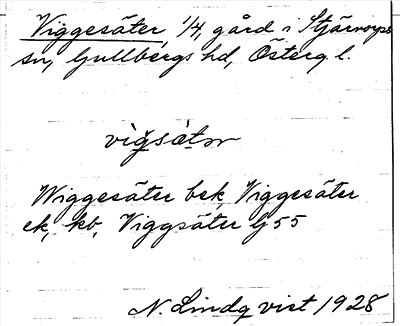 Viggesäter, 1/4, gård i Stjärnorps
sn, Gullbergs hd, Österg. l.
Wiggesäter bek, Viggesäter
ek, kb, Viggsäter G 55
N. Lindqvist 1928